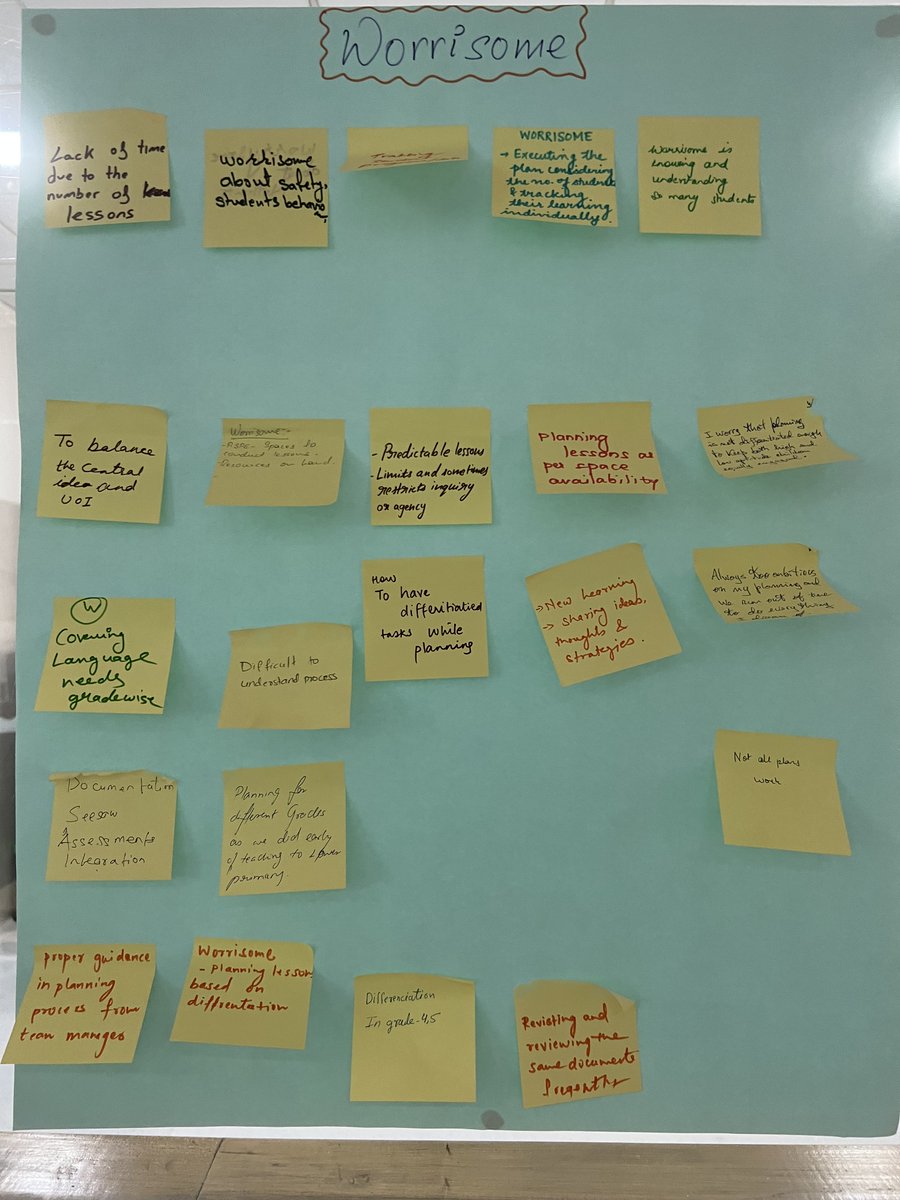 Worrisome
Lack of time
due to the
number of
lessons
Worrisome
about safety,
students behavio
WORRISOME
→ Executing the
plan considering
the no. of student
& tracking
their learning
individually.
Worrisome is
knowing and
understanding
so many students
To balance
the central
idea and
UOI
Worrisome-
Spaces to
conduct lessons-
Resources on hand.
- Predictable lessons
- Limits and sometimes
restricts inquiry
or agency
Planning
lessons as
per space
availability
I worry that planning
is not differentiated enough
to keep both high and
children
W
Covering
Language
needs
gradewise
Difficult to
understand process
HOW
To have
differitiatied
tasks while
planning
→ New Learning
→ sharing ideas,
thoughts &
strategies.
Always too ambitious
on my planning and
we run out of time
to do everything
I dream of
Documentation
Seesaw
Assessments
Integration
Planning for
different Grades
as we did early
of teaching to Lower
primary.
Not all plans
work
proper guidance
in planning
process from
team manager
Worrisome
- Planning lesson
based on
diffrentation
Differenciation
In grade-4,5
Revisting and
reviewing the
same documents